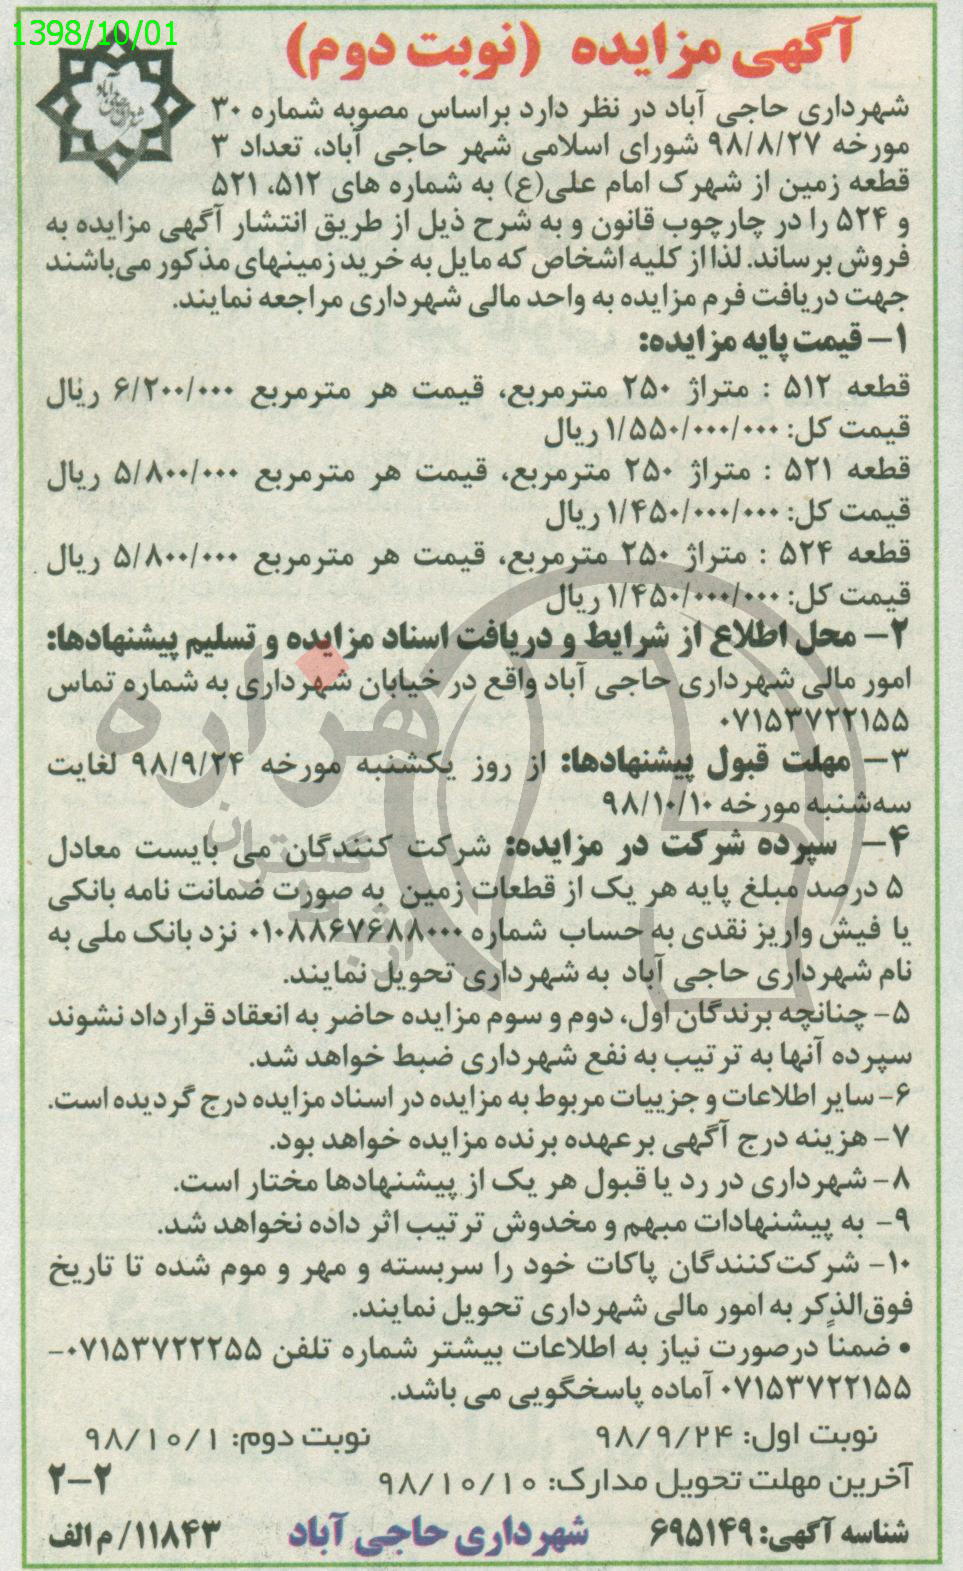 1398/10/01
آگهی مزایده (نوبت دوم)
شهرداری حاجی آباد در نظر دارد براساس مصوبه شماره ۳۰
مورخه ۹۸/۸/۲۷ شورای اسلامی شهر حاجی آباد، تعداد ۳
قطعه زمین از شهرک امام علی(ع) به شماره های ۵۱۲، ۵۲۱
و ۵۲۴ را در چارچوب قانون و به شرح ذیل از طریق انتشار آگهی مزایده به
فروش برساند. لذا از کلیه اشخاص که مایل به خرید زمینهای مذکور می‌باشند
جهت دریافت فرم مزایده به واحد مالی شهرداری مراجعه نمایند.
۱– قیمت پایه مزایده:
قطعه ۵۱۲ : متراژ ۲۵۰ مترمربع، قیمت هر مترمربع ۶/۲۰۰/۰۰۰ ریال
قیمت کل: ۱/۵۵۰/۰۰۰/۰۰۰ ریال
قطعه ۵۲۱ : متراژ ۲۵۰ مترمربع، قیمت هر مترمربع ۵/۸۰۰/۰۰۰ ریال
قیمت کل: ۱/۴۵۰/۰۰۰/۰۰۰ ریال
قطعه ۵۲۴ : متراژ ۲۵۰ مترمربع، قیمت هر مترمربع ۵/۸۰۰/۰۰۰ ریال
قیمت کل: ۱/۴۵۰/۰۰۰/۰۰۰ ریال
۲– محل اطلاع از شرایط و دریافت اسناد مزایده و تسلیم پیشنهادها:
امور مالی شهرداری حاجی آباد واقع در خیابان شهرداری به شماره تماس
۰۷۱۵۳۷۲۲۱۵۵
۳– مهلت قبول پیشنهادها: از روز یکشنبه مورخه ۹۸/۹/۲۴ لغایت
سه‌شنبه مورخه ۹۸/۱۰/۱۰
۴– سپرده شرکت در مزایده: شرکت کنندگان می بایست معادل
۵ درصد مبلغ پایه هر یک از قطعات زمین به صورت ضمانت نامه بانکی
یا فیش واریز نقدی به حساب شماره ۰۱۰۸۸۶۷۶۸۸۰۰۰ نزد بانک ملی به
نام شهرداری حاجی آباد به شهرداری تحویل نمایند.
۵– چنانچه برندگان اول، دوم و سوم مزایده حاضر به انعقاد قرارداد نشوند
سپرده آنها به ترتیب به نفع شهرداری ضبط خواهد شد.
۶– سایر اطلاعات و جزییات مربوط به مزایده در اسناد مزایده درج گردیده است.
۷– هزینه درج آگهی برعهده برنده مزایده خواهد بود.
۸– شهرداری در رد یا قبول هر یک از پیشنهادها مختار است.
۹– به پیشنهادات مبهم و مخدوش ترتیب اثر داده نخواهد شد.
۱۰– شرکت‌کنندگان پاکات خود را سربسته و مهر و موم شده تا تاریخ
فوق‌الذکر به امور مالی شهرداری تحویل نمایند.
• ضمناً درصورت نیاز به اطلاعات بیشتر شماره تلفن ۰۷۱۵۳۷۲۲۲۵۵–
۰۷۱۵۳۷۲۲۱۵۵ آماده پاسخگویی می باشد.
نوبت اول: ۹۸/۹/۲۴ نوبت دوم: ۹۸/۱۰/۱
آخرین مهلت تحویل مدارک: ۹۸/۱۰/۱۰ ۲–۲
شناسه آگهی: ۶۹۵۱۴۹ شهرداری حاجی آباد ۱۱۸۴۳/ م الف
هزاره